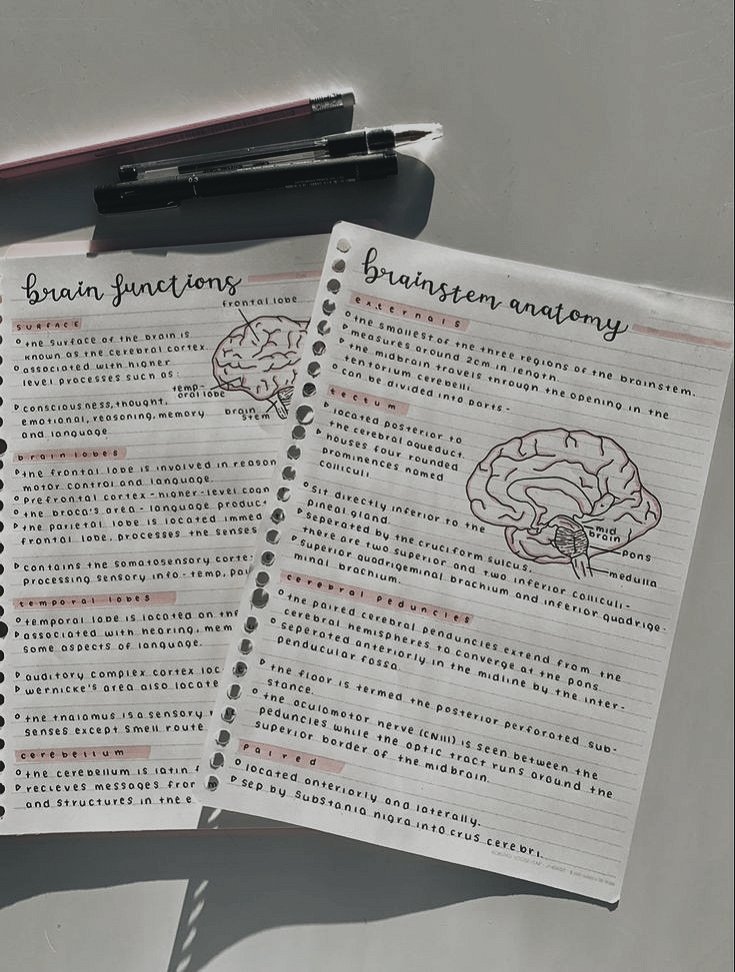 brain functions
frontal lobe
surface
the surface of the brain is
known as the cerebral cortex.
associated with higher
level processes such as:
temp-
oral lobe
brain
stem
consciousness, thought,
emotional, reasoning, memory
and language.
brain lobes
the frontal lobe is involved in reason
motor control and language.
prefrontal cortex - higher-level
the broca's area - language
the parietal lobe is located
frontal lobe, processes the senses
contains the somatosensory
processing sensory info - temp,
temporal lobes
temporal lobe is located on
associated with hearing, mem
some aspects of language.
auditory complex cortex loc
wernicke's area also locate
the thalamus is a sensory
senses except smell route
cerebellum
the cerebellum is latin
recieves messages
and structures in the
brainstem anatomy
externals
the smallest of the three regions of the brainstem.
measures around 2cm in length.
the midbrain travels through the opening in the
tentorium cerebelli.
can be divided into parts -
tectum
located posterior to
the cerebral aqueduct.
houses four rounded
prominences named
colliculi
sit directly inferior to the
pineal gland.
seperated by the cruciform sulcus.
there are two superior and two inferior colliculi -
superior quadrigeminal brachium and inferior quadrige-
minal brachium.
mid
brain
pons
medulla
cerebral peduncles
the paired cerebral penduncies extend from the
cerebral hemispheres to converge at the pons
seperated anteriorly in the midline by the inter-
penducular fossa.
the floor is termed the posterior perforated sub-
stance.
the oculomotor nerve (CNIII) is seen between the
peduncies while the optic tract runs around the
superior border of the midbrain.
paired
located anteriorly and laterally.
sep by substania nigra into crus cerebri.